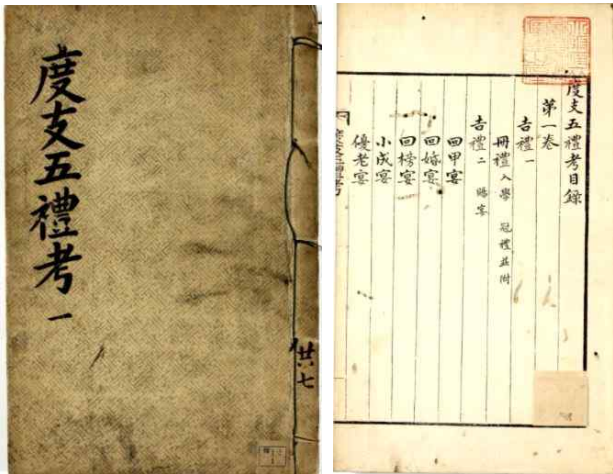 度支五禮考 一
共七
度支五禮考目錄
第一卷
吉禮一
冊禮 入學 冠禮並附
吉禮二 賜宴
回甲宴
回婚宴
回榜宴
小成宴
優老宴